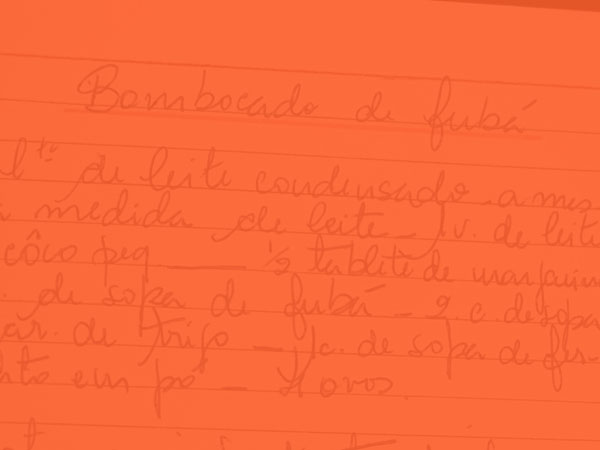 Bombocado de fubá
lt. de leite condensado - a mes
a medida de leite - 1 v. de leit
côco peq — 1/2 tablete de margarin
. de sopa de fubá - 2 c. de sopa
ar. de trigo - 1 c. de sopa de fer-
nto em pó - 4 ovos.